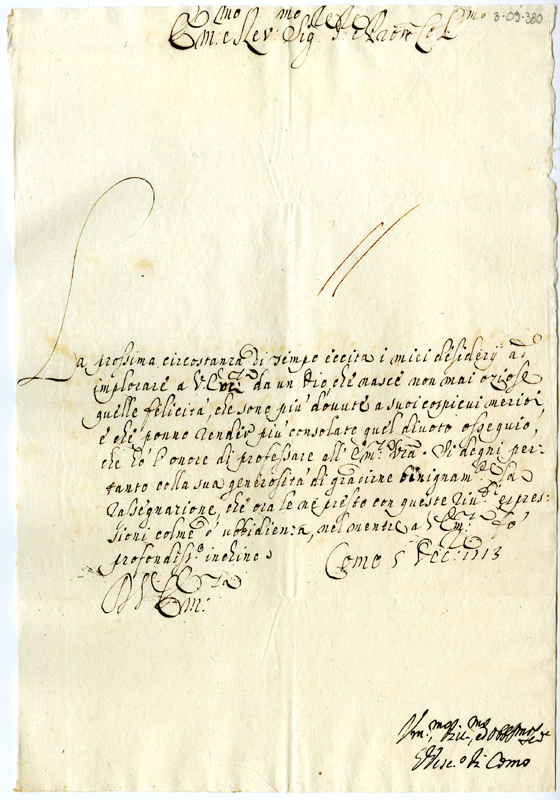 3-09-380
Em.mo e Rev.mo Sig.r
La prossima circostanza di tempo eccita i miei desiderij ad
implorare a V. Em.za da un Dio che nasce non mai oziose
quelle felicità, che sono più dovute a suoi cospicui meriti
e che ponno render più consolato quel divoto ossequio,
che hò l'onore di professare all' Em.za Vra. Si degni per-
tanto colla sua generosità di gradirne benignam.te la
rassegnazione, che ora le ne presto con queste riv.e espres-
sioni colme d'ubbidienza, nel mentre a V. Em.za fò
profondiss.o inchino
Como 5 Dec. 1713
Di V. Em.za
Um.mo ed Obb.mo
Vesc.o di Como